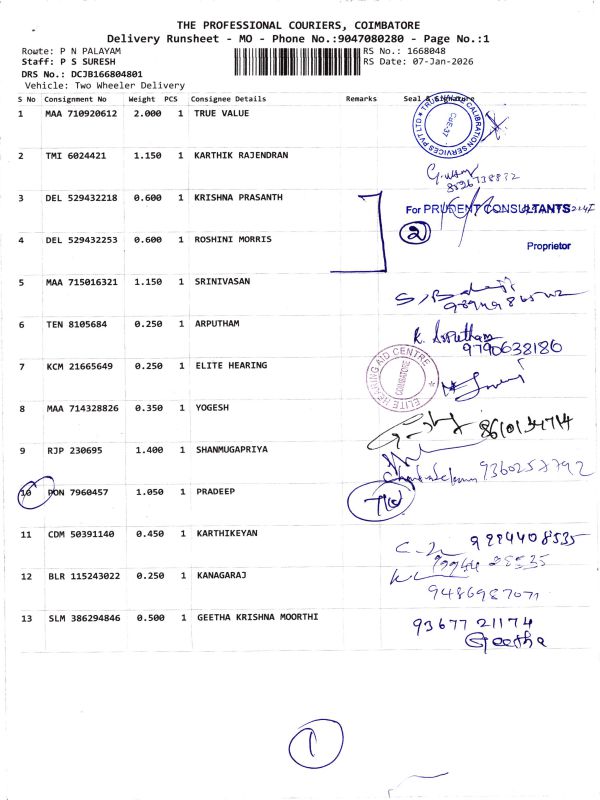 THE PROFESSIONAL COURIERS, COIMBATORE
Delivery Runsheet - MO - Phone No.:9047080280 - Page No.:1
Route: P N PALAYAM
RS No.: 1668048
Staff: P S SURESH
RS Date: 07-Jan-2026
DRS No.: DCJB166804801
Vehicle: Two Wheeler Delivery
S No Consignment No Weight PCS Consignee Details Remarks Seal & Signature
1 MAA 710920612 2.000 1 TRUE VALUE
TRUE CALIBRATION SERVICES PVT LTD
2 TMI 6024421 1.150 1 KARTHIK RAJENDRAN
3 DEL 529432218 0.600 1 KRISHNA PRASANTH
For PRUDENT CONSULTANTS
2
4 DEL 529432253 0.600 1 ROSHINI MORRIS
Proprietor
5 MAA 715016321 1.150 1 SRINIVASAN
6 TEN 8105684 0.250 1 ARPUTHAM
K. Arputham
9790638186
7 KCM 21665649 0.250 1 ELITE HEARING
ELITE HEARING AID CENTRE
COIMBATORE
8 MAA 714328826 0.350 1 YOGESH
9 RJP 230695 1.400 1 SHANMUGAPRIYA
9360257792
10 PON 7960457 1.050 1 PRADEEP
11 CDM 50391140 0.450 1 KARTHIKEYAN
9994408535
12 BLR 115243022 0.250 1 KANAGARAJ
9486987071
13 SLM 386294846 0.500 1 GEETHA KRISHNA MOORTHI
93677 21174
Geetha
1